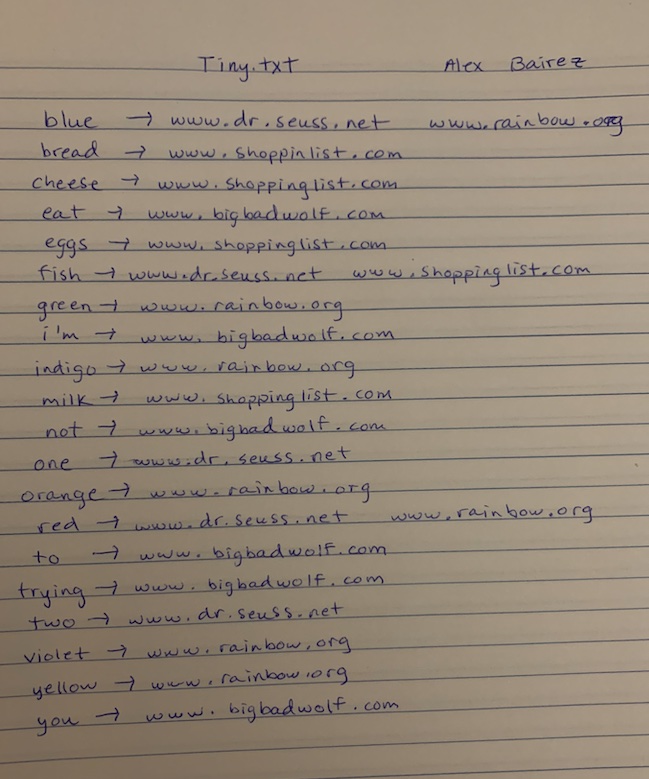 Tiny.txt Alex Bairez
blue → www.dr.seuss.net www.rainbow.org
bread → www.shoppinlist.com
cheese → www.shoppinglist.com
eat → www.bigbadwolf.com
eggs → www.shoppinglist.com
fish → www.dr.seuss.net www.shoppinglist.com
green → www.rainbow.org
i'm → www.bigbadwolf.com
indigo → www.rainbow.org
milk → www.shoppinglist.com
not → www.bigbadwolf.com
one → www.dr.seuss.net
orange → www.rainbow.org
red → www.dr.seuss.net www.rainbow.org
to → www.bigbadwolf.com
trying → www.bigbadwolf.com
two → www.dr.seuss.net
violet → www.rainbow.org
yellow → www.rainbow.org
you → www.bigbadwolf.com